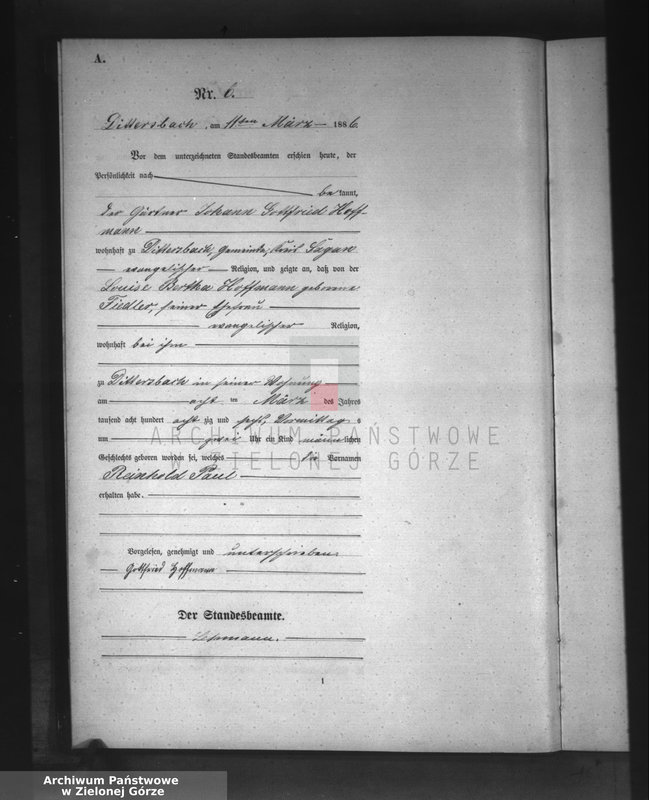 A.
Nr. 6.
Dittersbach, am 11ten März 1886.
Vor dem unterzeichneten Standesbeamten erschien heute, der
Persönlichkeit nach
be kannt,
der Gärtner Johann Gottfried Hoff-
mann
wohnhaft zu Dittersbach, Gemeinde, Kreis Sagan
evangelischer Religion, und zeigte an, daß von der
Louise Bertha Hoffmann geborene
Fiedler, seiner Ehefrau
evangelischer Religion,
wohnhaft bei ihm
zu Dittersbach in seiner Wohnung
am acht ten März des Jahres
tausend acht hundert acht zig und sechs, Vormittag s
um zwei Uhr ein Kind männ lichen
Geschlechts geboren worden sei, welches die Vornamen
Reinhold Paul
erhalten habe.
Vorgelesen, genehmigt und unterschrieben
Gottfried Hoffmann
Der Standesbeamte.
Lehmann.
1
ARCHIWUM PAŃSTWOWE
W ZIELONEJ GÓRZE
Archiwum Państwowe
w Zielonej Górze